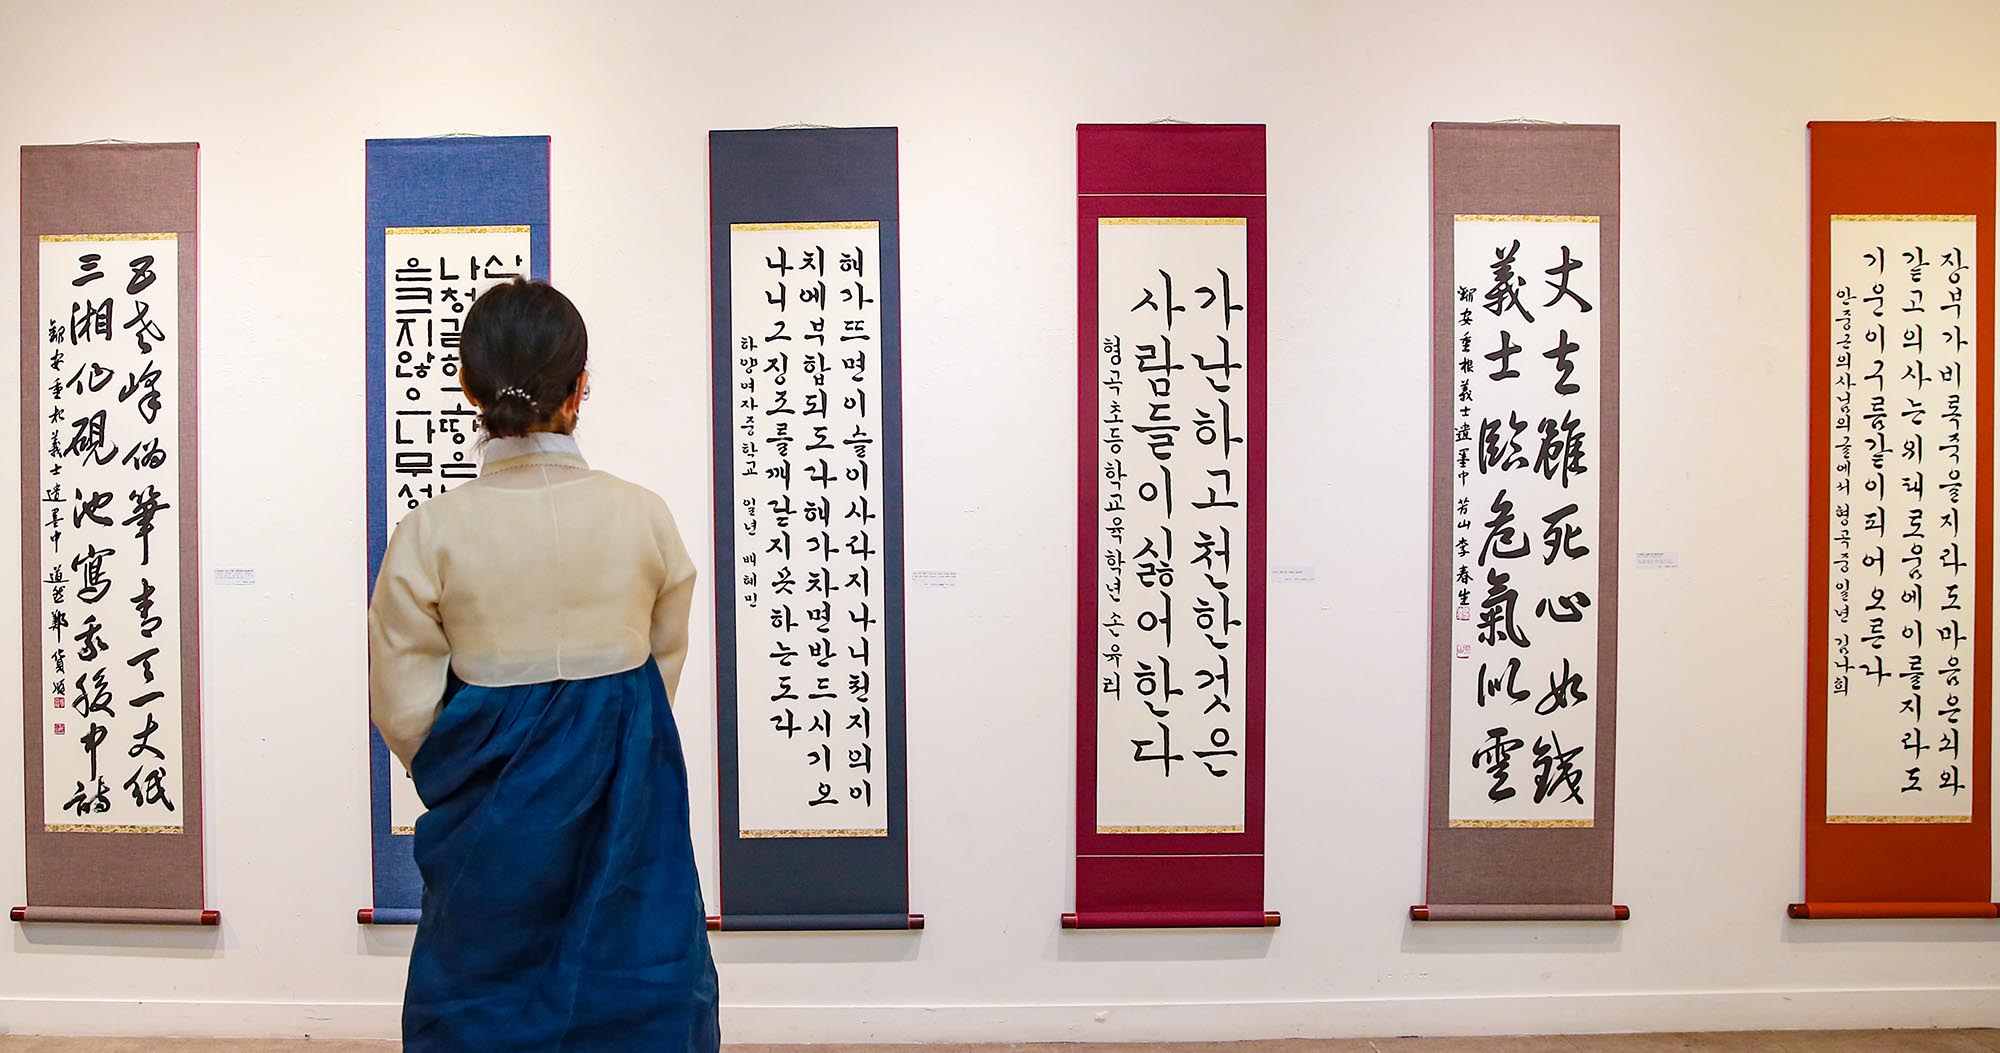 五老峰為筆青天一丈紙
三湘作硯池寫我腹中詩
錄安重根義士遺墨中 道然 鄭貨順
산
나청글하 땅은
은크지않으나무성
해가뜨면이슬이사라지나니천지의이
치에부합되도다해가차면반드시기오
나니그징조를깨닫지못하는도다
하양여자중학교 일년 배혜민
가난하고천한것은
사람들이싫어한다
형곡초등학교육학년 손유리
丈夫雖死心如鐵
義士臨危氣似雲
錄安重根義士遺墨中 芳山 李春生
장부가비록죽을지라도마음은쇠와
같고의사는위태로움에이를지라도
기운이구름같이되어오른다
안중근의사님의글에서 형곡중일년 김나희